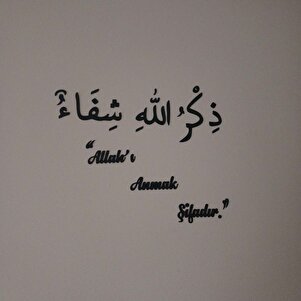 ذِكْرُ اللّٰهِ شِفَاءٌ
“Allah'ı
Anmak
Şifadır.”